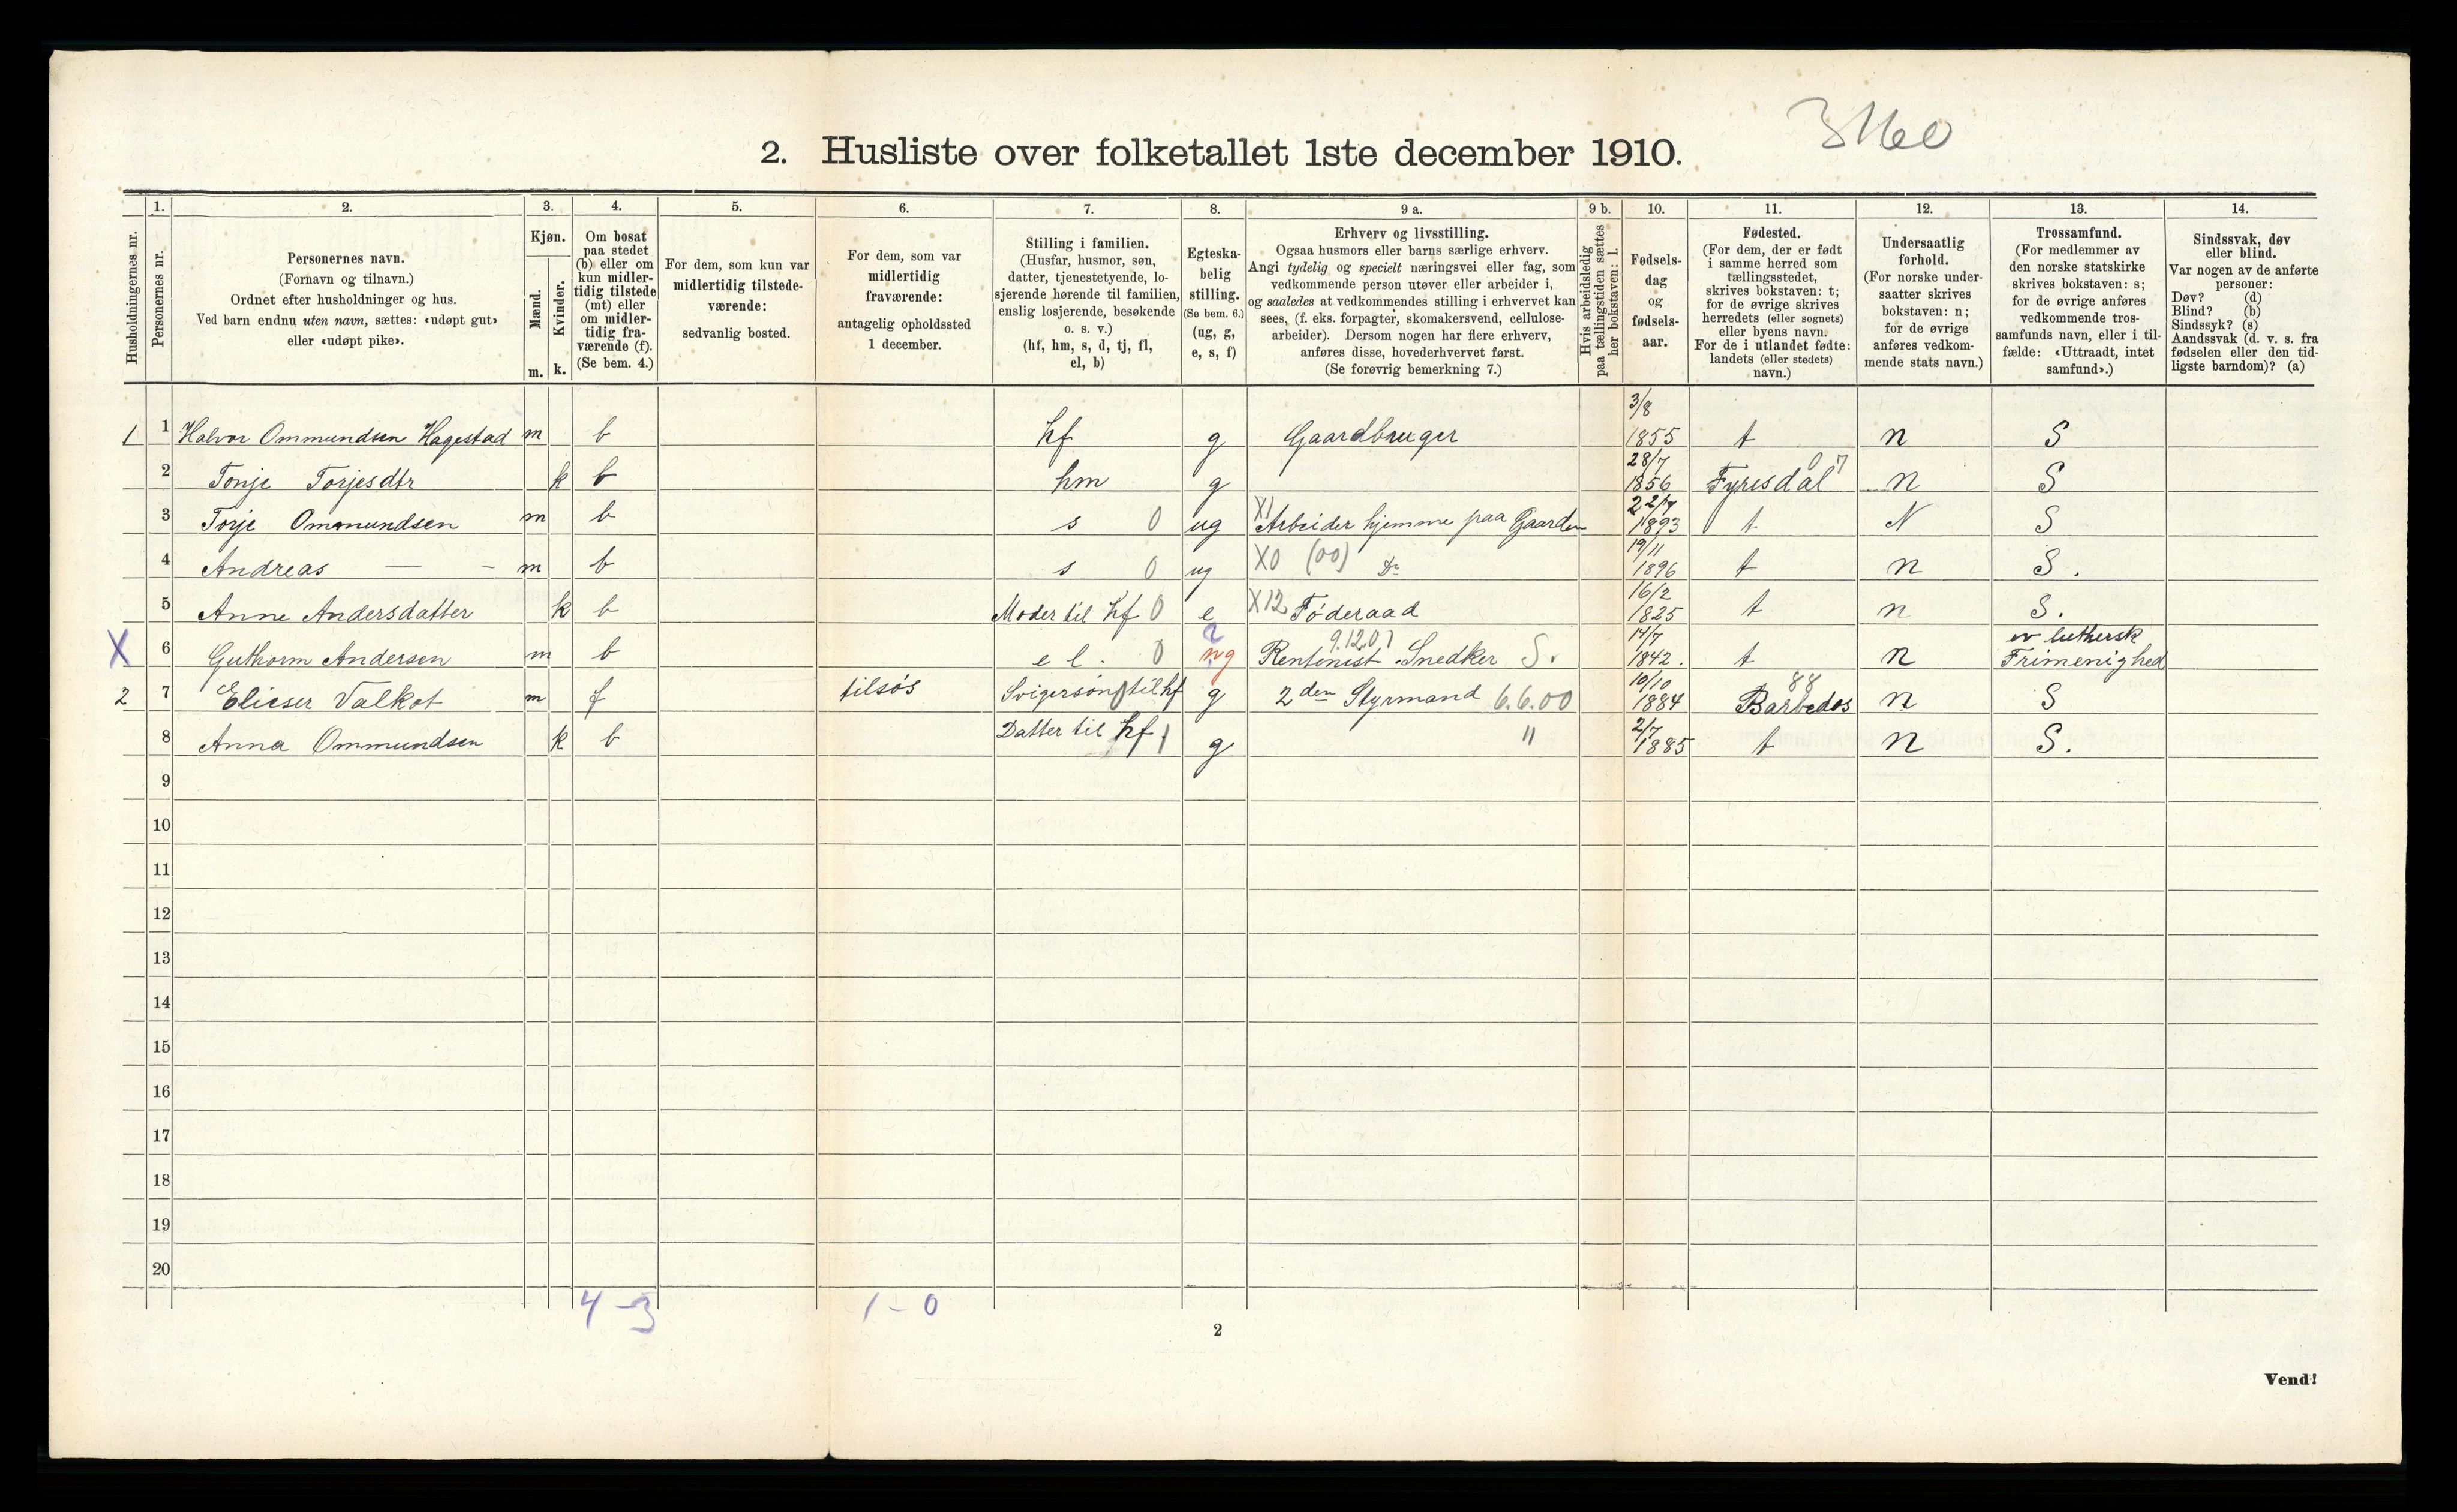 3160
2. Husliste over folketallet 1ste december 1910.
Husholdningernes nr.
1. 2. 3. 4. 5. 6. 7. 8. 9 a. 9 b. 10. 11. 12. 13. 14.
Personernes nr.
Personernes navn.
(Fornavn og tilnavn.)
Ordnet efter husholdninger og hus.
Ved barn endnu uten navn, sættes: «udøpt gut»
eller «udøpt pike».
Kjøn.
Mænd.
Kvinder.
m. k.
Om bosat
paa stedet
(b) eller om
kun midler-
tidig tilstede
(mt) eller
om midler-
tidig fra-
værende (f).
(Se bem. 4.)
For dem, som kun var
midlertidig tilstede-
værende:
sedvanlig bosted.
For dem, som var
midlertidig
fraværende:
antagelig opholdssted
1 december.
Stilling i familien.
(Husfar, husmor, søn,
datter, tjenestetyende, lo-
sjerende hørende til familien,
enslig losjerende, besøkende
o. s. v.)
(hf, hm, s, d, tj, fl,
el, b)
Egteska-
belig
stilling.
(Se bem. 6.)
(ug, g,
e, s, f)
Erhverv og livsstilling.
Ogsaa husmors eller barns særlige erhverv.
Angi tydelig og specielt næringsvei eller fag, som
vedkommende person utøver eller arbeider i,
og saaledes at vedkommendes stilling i erhvervet kan
sees, (f. eks. forpagter, skomakersvend, cellulose-
arbeider). Dersom nogen har flere erhverv,
anføres disse, hovederhvervet først.
(Se forøvrig bemerkning 7.)
Hvis arbeidsledig
paa tællingstiden sættes
her bokstaven: l.
Fødsels-
dag
og
fødsels-
aar.
Fødested.
(For dem, der er født
i samme herred som
tællingsstedet,
skrives bokstaven: t;
for de øvrige skrives
herredets (eller sognets)
eller byens navn.
For de i utlandet fødte:
landets (eller stedets)
navn.)
Undersaatlig
forhold.
(For norske under-
saatter skrives
bokstaven: n;
for de øvrige
anføres vedkom-
mende stats navn.)
Trossamfund.
(For medlemmer av
den norske statskirke
skrives bokstaven: s;
for de øvrige anføres
vedkommende tros-
samfunds navn, eller i til-
fælde: «Uttraadt, intet
samfund».)
Sindssvak, døv
eller blind.
Var nogen av de anførte
personer:
Døv? (d)
Blind? (b)
Sindssyk? (s)
Aandssvak (d. v. s. fra
fødselen eller den tid-
ligste barndom)? (a)
1 1 Halvor Ommundsen Hagestad m b hf g Gaardbruger 3/8 1855 t n S
2 Tonje Torjesdtr k b hm g 28/7 1856 Fyresdal 07 n S
3 Torje Ommundsen m b s 0 ug X1 Arbeider hjemme paa Gaarden 22/7 1893 t. N S
4 Andreas — - m b s 0 ug X0 (00) Do 19/11 1896 t n S.
5 Anne Andersdatter k b Moder til hf 0 e X12 Føderaad 16/2 1825 t n S.
X 6 Guthorm Andersen m b el. 0 ? ug 9.12.01 Rentenist. Snedker S. 14/7 1842. t n ev luthersk Frimenighed
2 7 Elieser Valkot m f tilsøs Svigersøn til hf g 2den Styrmand 6.6.00 10/10 1884 88 Barbedos n S
8 Anna Ommundsen k b Datter til hf 1 g " 2/7 1885 t n S.
9
10
11
12
13
14
15
16
17
18
19
20
4 - 3 1 - 0
2
Vend!